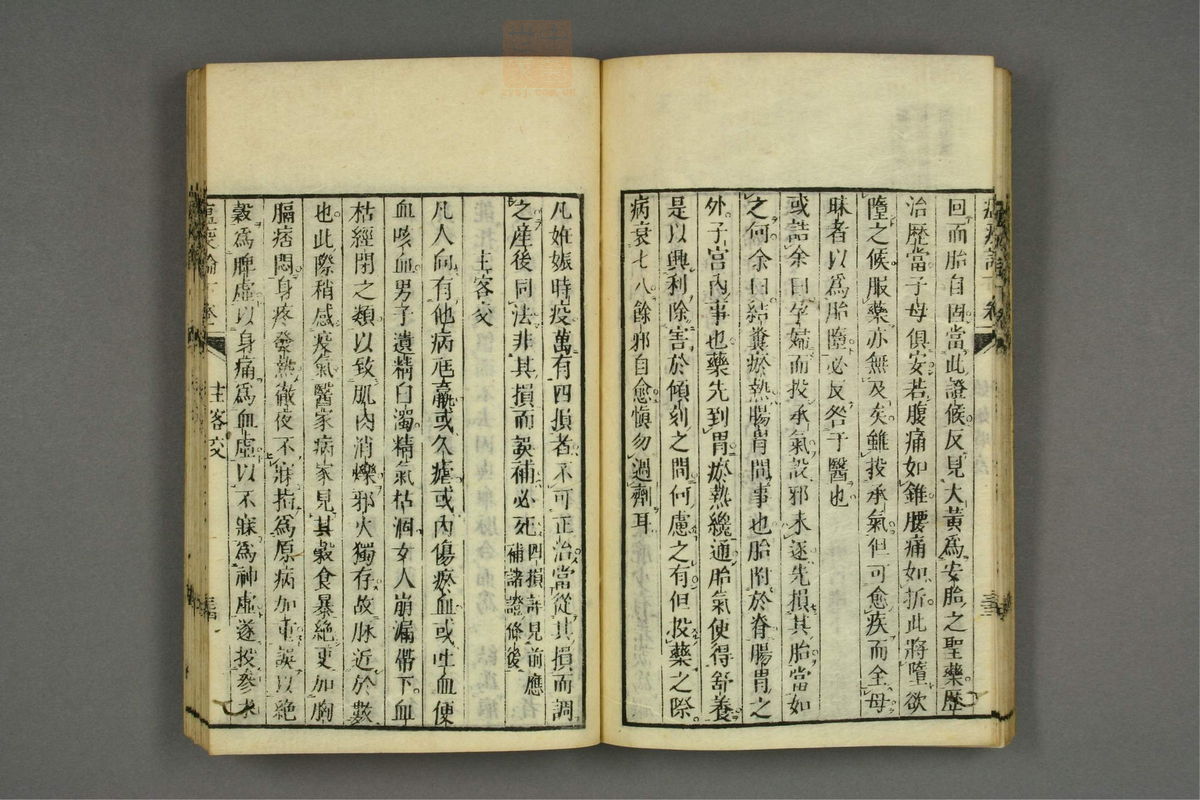 回而胎自固當此證候反見大黃爲安胎之聖藥歷
治歷當子母俱安若腹痛如錐腰痛如折此將墮欲
墮之候服藥亦無及矣雖投承氣但可愈疾而全母
昧者以爲胎墮必反咎于醫也
或詰余曰孕婦而投承氣設邪未逐先損其胎當如
之何余曰結糞瘀熱腸胃間事也胎附於脊腸胃之
外子宮內事也藥先到胃瘀熱纔通胎氣便得舒養
是以興利除害於傾刻之間何慮之有但投藥之際
病衰七八餘邪自愈愼勿過劑耳
凡妊娠時疫萬有四損者不可正治當從其損而調
之産後同法非其損而誤補必死四損詳見前應補諸證條後
主客交
凡人向有他病尫羸或久瘧或內傷瘀血或吐血便
血咳血男子遺精白濁精氣枯涸女人崩漏帶下血
枯經閉之類以致肌肉消爍邪火獨存故脉近於數
也此際稍感疫氣醫家病家見其穀食暴絶更加胸
膈痞悶身疼發熱徹夜不寐指爲原病加重誤以絶
穀爲脾虛以身痛爲血虛以不寐爲神虛遂投參朮
主客交